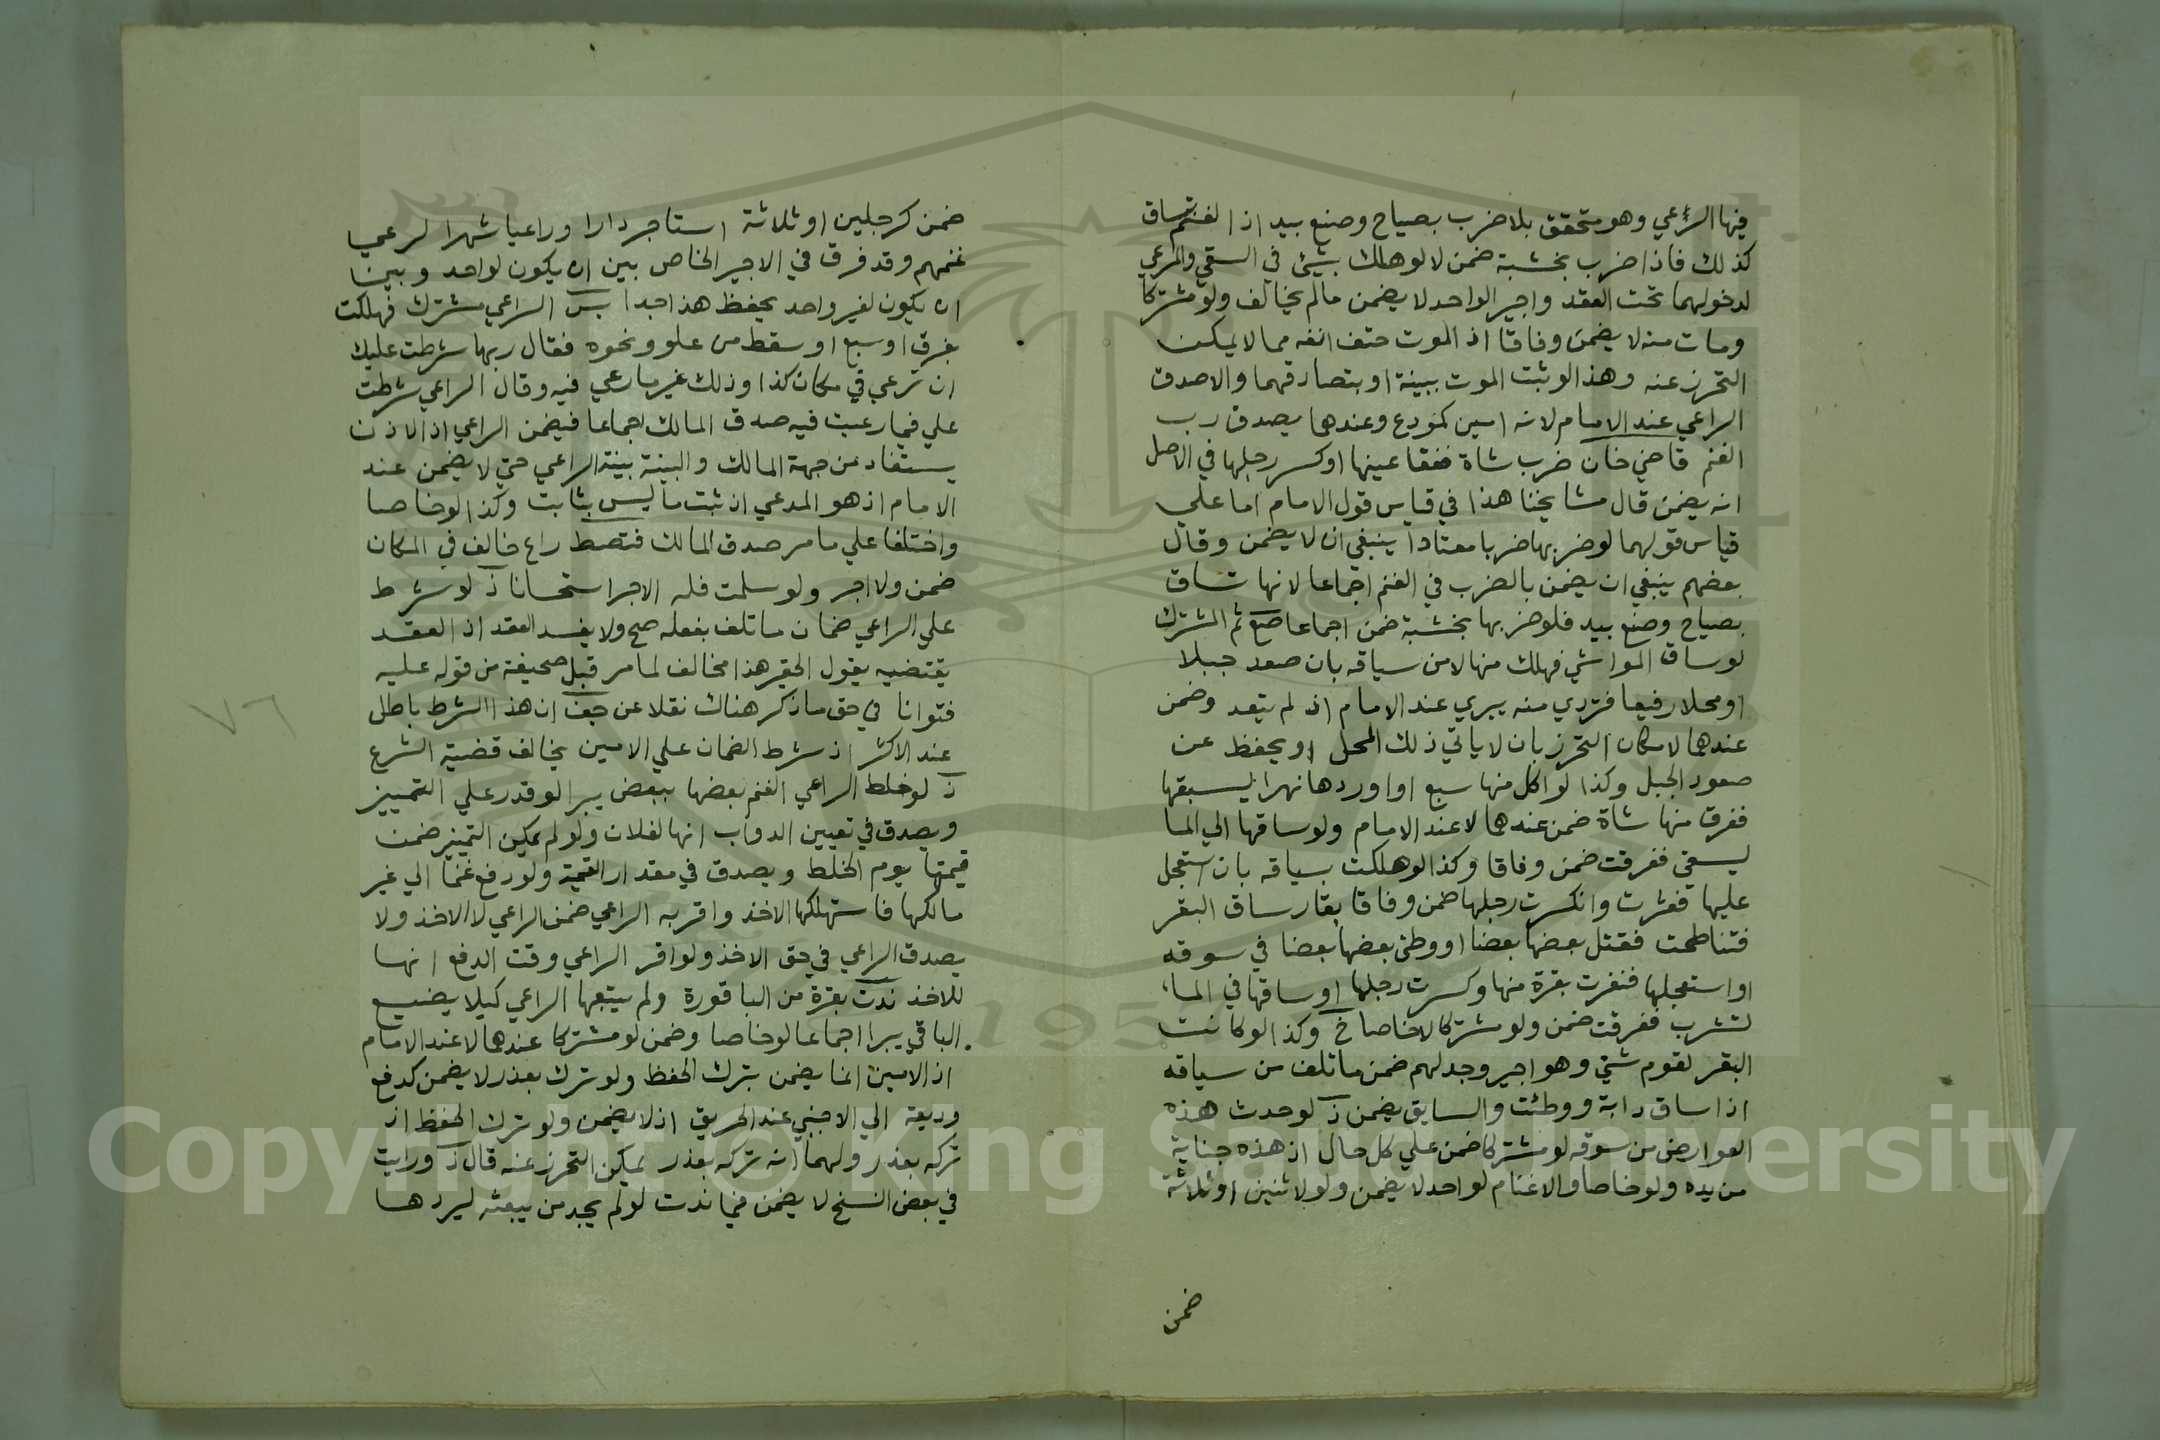 فيها الرعي وهو متحقق بلا ضرب بصياح وصنع بيد اذ الغنم تساق
كذلك فاذا ضرب بخشبة ضمن لا لو هلك بشئ في السقي والمرعي
لدخولهما تحت العقد واجير الواحد لا يضمن مالم يخالف ولو مشتركا
ومات منه لا يضمن وفاقا اذ الموت حتف انفه مما لا يمكن
التحرز عنه وهذا لو ثبت الموت ببينة او بتصادقهما والا صدق
الراعي عند الامام لانه امين كمودع وعندهما يصدق رب
الغنم قاضي خان ضرب شاة ففقا عينها او كسر رجلها في الاصل
انه يضمن قال مشايخنا هذا في قياس قول الامام اما علي
قياس قولهما لو ضربها ضربا معتادا ينبغي ان لا يضمن وقال
بعضهم ينبغي ان يضمن بالضرب في الغنم اجماعا لانها تساق
بصياح وصنع بيد فلو ضربها بخشبة ضمن اجماعا صع ثم المشترك
لو ساق المواشي فهلك منها لا من سياقه بان صعد جبلا
او محلا رفيعا فتردي منه يبري عند الامام اذ لم يتعد وضمن
عندهما لامكان التحرز بان لا ياتي ذلك المحل او يحفظ عن
صعود الجبل وكذا لو اكل منها سبع او اوردها نهرا ليسقها
فغرق منها شاة ضمن عندهما لا عند الامام ولو ساقها الي الما
ليسقي فغرقت ضمن وفاقا وكذا لو هلكت بسياقه بان استعجل
عليها فعثرت وانكسرت رجلها ضمن وفاقا بقار ساق البقر
فتناطحت فقتل بعضها بعضا او وطئ بعضها بعضا في سوقه
او استعجلها فنفرت بقرة منها وكسرت رجلها او ساقها في الماء
لتشرب فغرقت ضمن ولو مشتركا لا خاصا خ وكذا لو كانت
البقر لقوم شتي وهو اجير وجد لهم ضمن ما تلف من سياقه
اذا ساق دابة ووطئت والسايق يضمن ذ لو حدث هذه
العوارض من سوقه لو مشتركا ضمن علي كل حال اذ هذه جناية
من يده ولو خاصا والاغنام لواحد لا يضمن ولو لاثنين او ثلاثة
ضمن
ضمن كرجلين او ثلاثة استاجر دارا وراعيا شهرا لرعي
غنمهم وقد فرق في الاجير الخاص بين ان يكون لواحد وبين
ان يكون لغير واحد يحفظ هذا جدا الراعي مشترك فهلكت
بغرق او سبع او سقط من علو ونحوه فقال ربها شرطت عليك
ان ترعي في مكان كذا وذلك غير ما رعي فيه وقال الراعي شرطت
علي فيما رعيت فيه صدق المالك اجماعا فيضمن الراعي اذ الاذن
يستفاد من جهة المالك والبينة بينة الراعي حتي لا يضمن عند
الامام اذ هو المدعي اذ ثبت ما ليس بثابت وكذا لو خاصا
واختلفا علي ما مر صدق المالك راع خالف في المكان
ضمن ولا اجر ولو سلمت فله الاجر استحسانا ذ لو شرط
علي الراعي ضمان ما تلف بفعله صح ولا يفسد العقد اذ العقد
يقتضيه يقول الحقير هذا مخالف لما مر قبل صحيفة من قوله عليه
فتوانا في حق ما ذكر هناك نقلا عن ان هذا الشرط باطل
عند الاكثر اذ شرط الضمان علي الامين يخالف قضية الشرع
ذ لو خلط الراعي الغنم بعضها ببعض يبرا لو قدر علي التمييز
ويصدق في تعيين الدواب انها لفلان ولو لم يمكن التمييز ضمن
قيمتها يوم الخلط ويصدق في مقدار القيمة ولو دفع غنما الي غير
مالكها فاستهلكها الاخذ واقر به الراعي ضمن الراعي لا الاخذ ولا
يصدق الراعي في حق الاخذ ولو اقر الراعي وقت الدفع انها
للاخذ ندت بقرة من الباقورة ولم يتبعها الراعي كيلا يضيع
الباقي يبرا اجماعا لو خاصا وضمن لو مشتركا عندهما لا عند الامام
اذ الامين انما يضمن بترك الحفظ ولو ترك بعذر لا يضمن كدفع
وديعة الي الاجنبي عند الحريق اذ لا يضمن ولو ترك الحفظ اذ
تركه بعذر ولهما انه تركه بعذر يمكن التحرز عنه قال ذ ورايت
في بعض النسخ لا يضمن فيما ندت لو لم يجد من يبعثه ليردها
٧٦
1957
Copyright © King Saud University